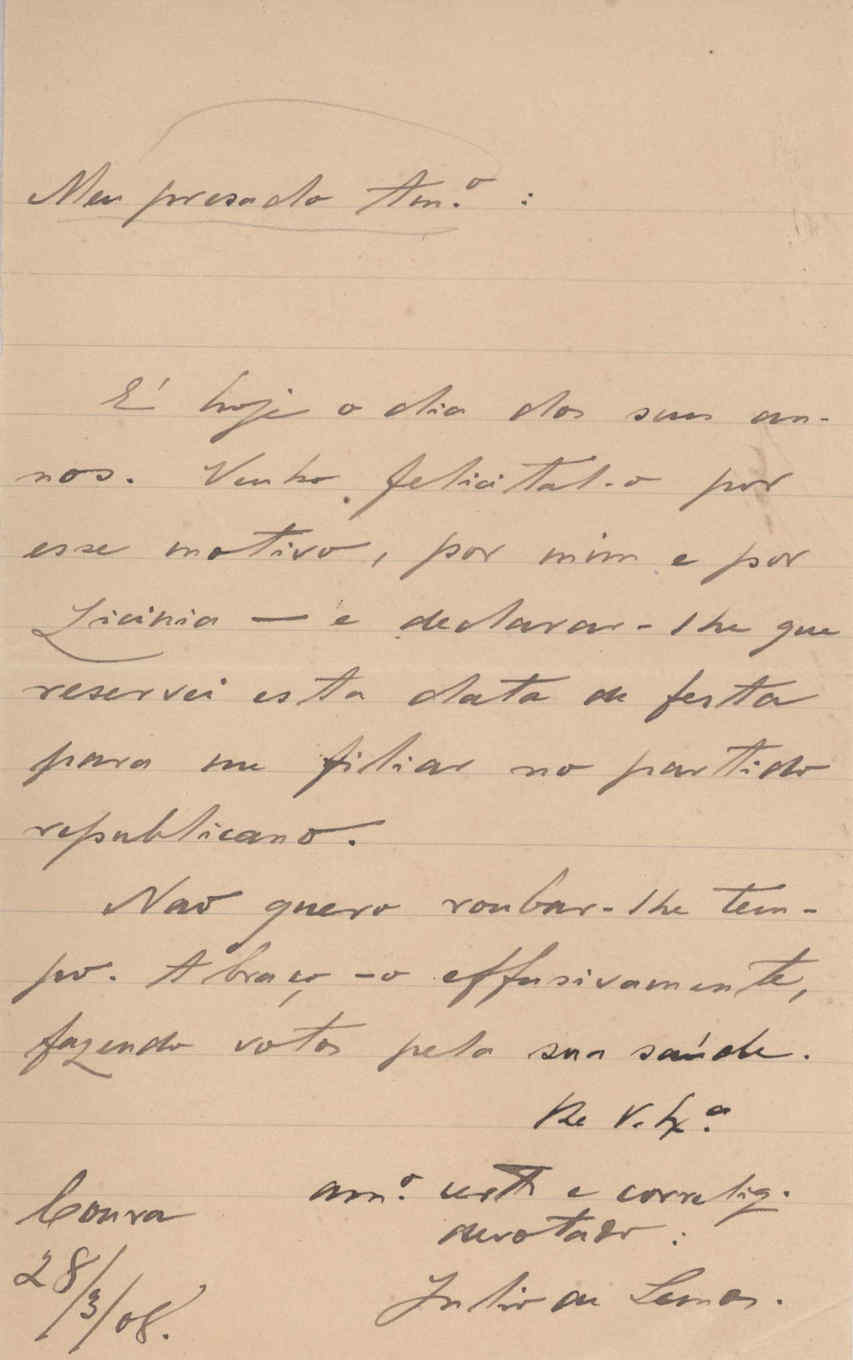 Meu presado Am.º :
É hoje o dia dos seus an-
nos. Venho felicital-o por
esse motivo, por mim e por
Licinia — e declarar-lhe que
reservei esta data de festa
para me filiar no partido
republicano.
Não quero roubar-lhe tem-
po. Abraço-o effusivamente,
fazendo votos pela sua saúde.
De V. Ex.ª
am.º certo e correlig.
devotado:
Julio de Lemos.
Coura
28/3/08.